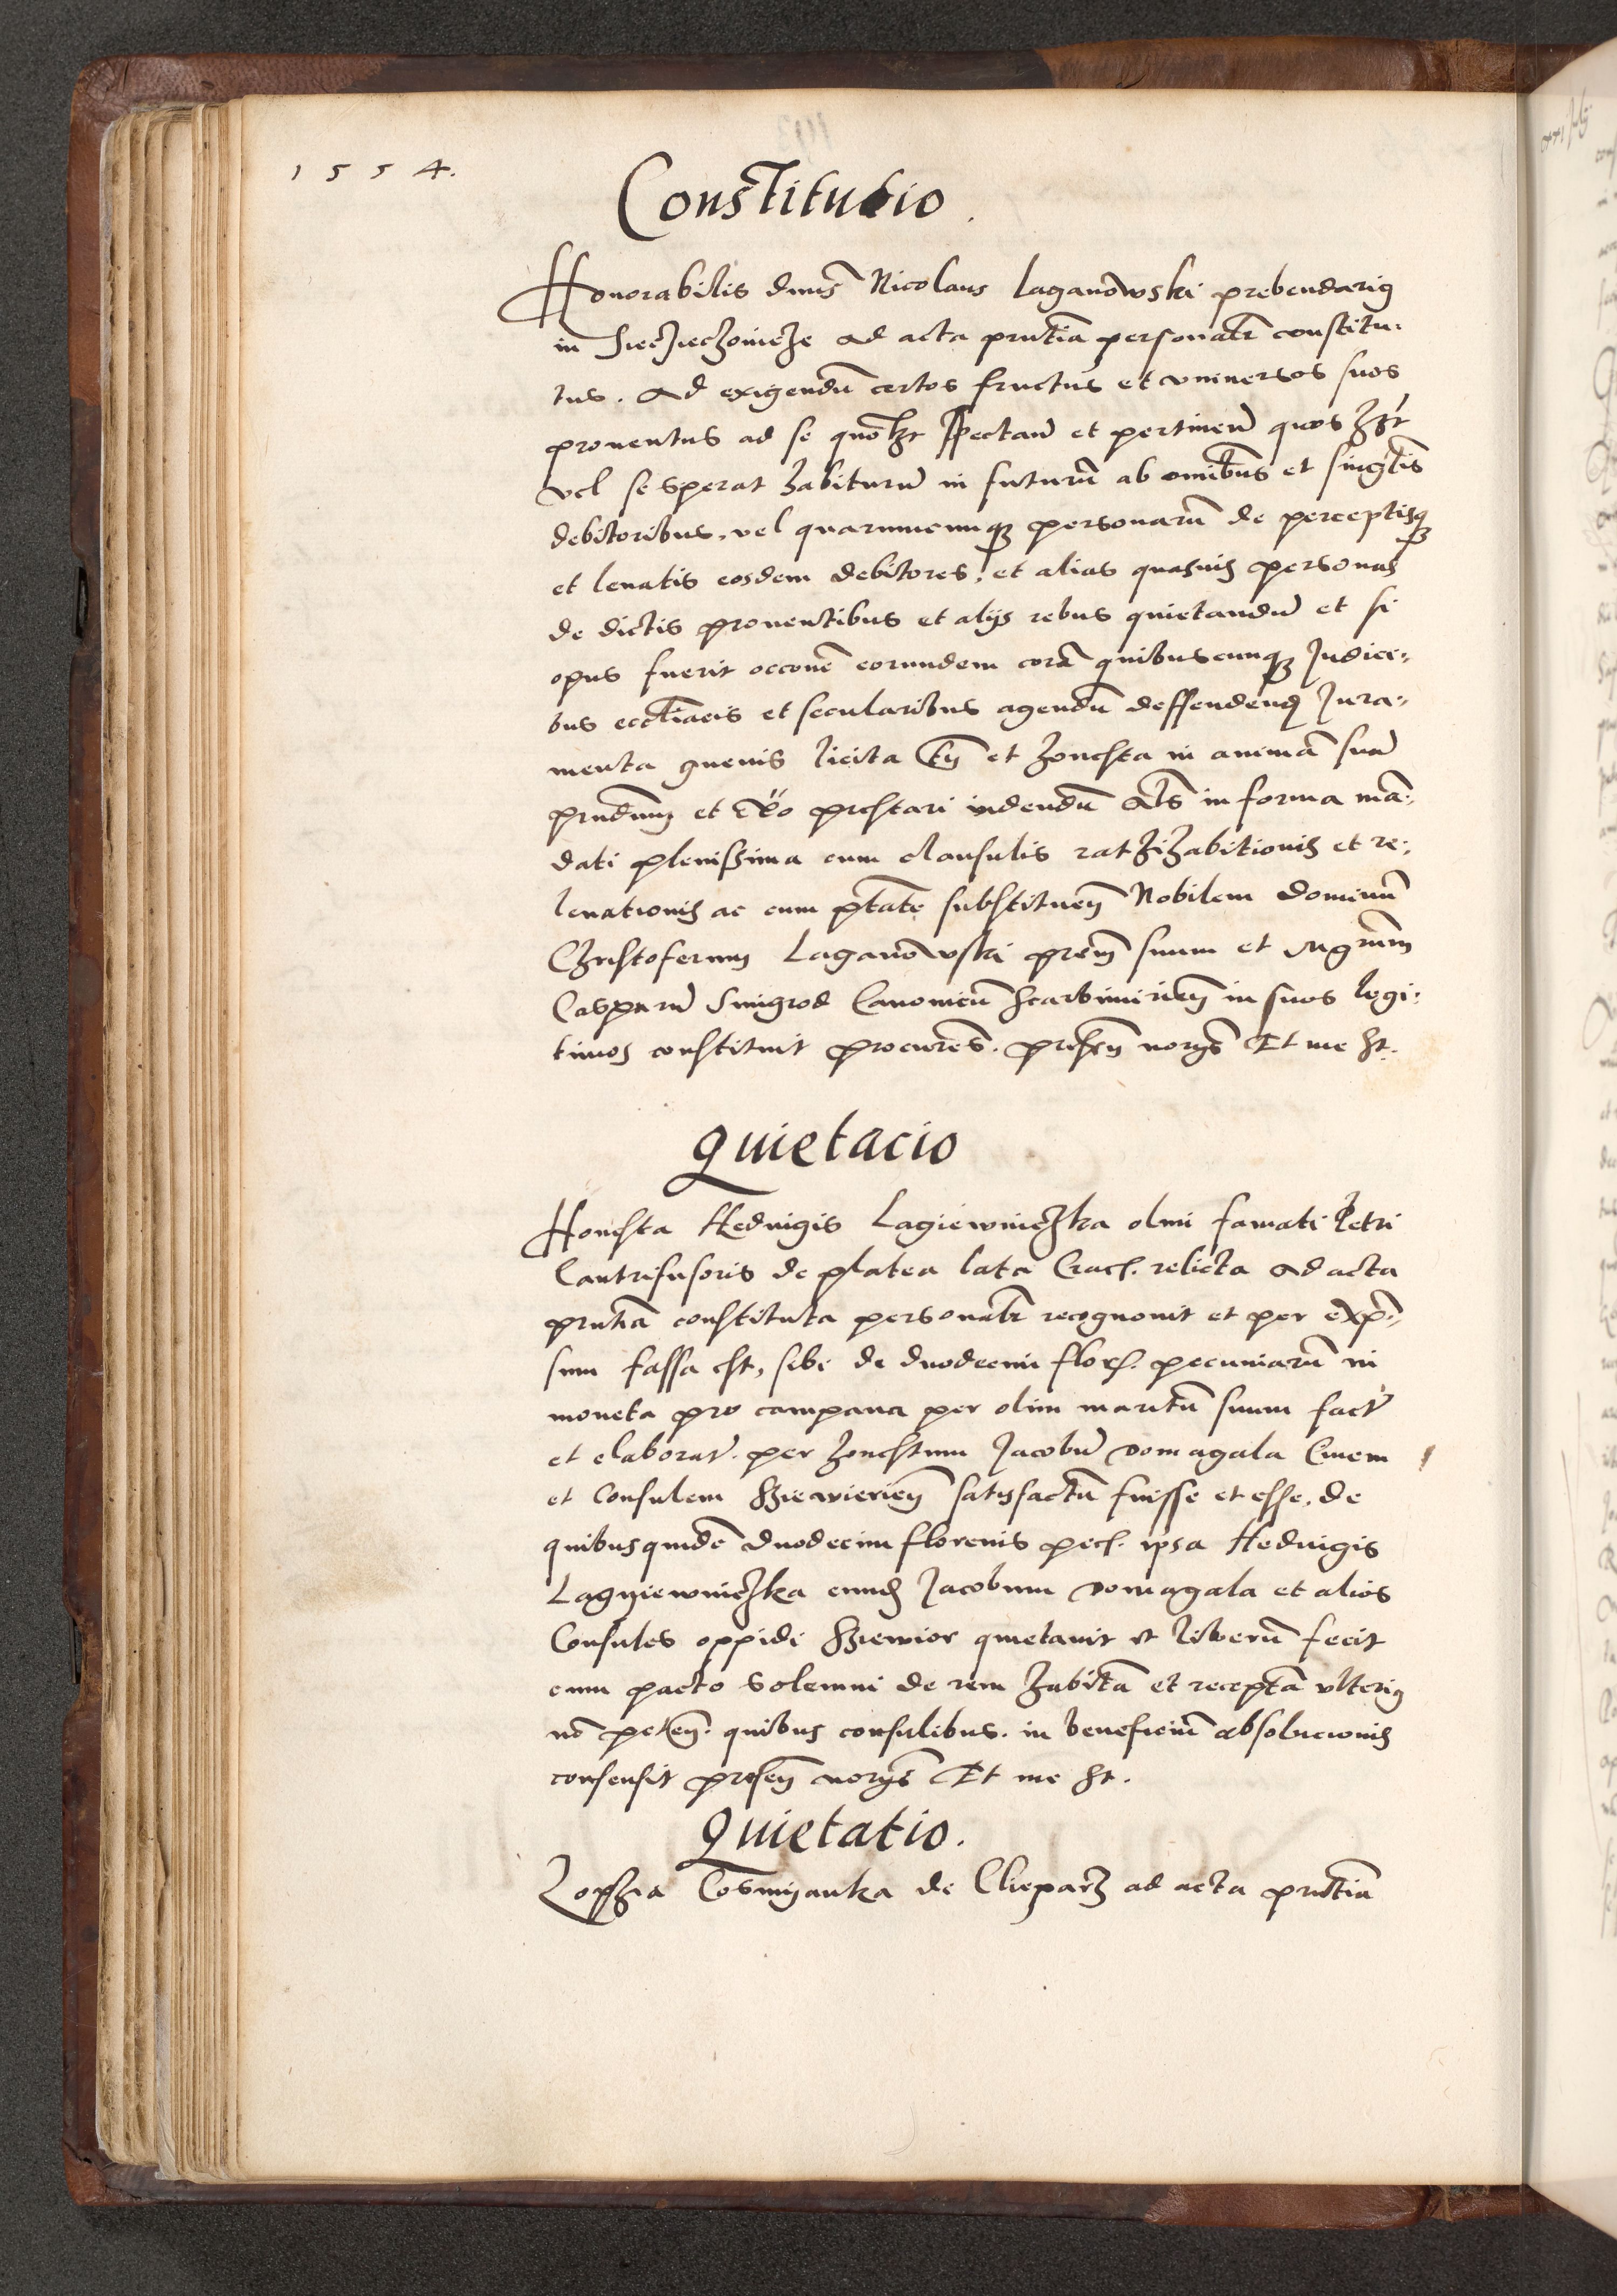 1554.
Constitutio.
Honorabilis dnus Nicolaus Laganowski prebendarius
in ad acta prntia personalr constitu-
tus. Ad exigendu certos fructus et vniuersos suos
prouentus ad se quolzt spectan et pertinen quos hzt
vel se sperat habituru in futuru ab omibus et singlis
debitoribus, vel quarumcunq personaru de perceptisq
et leuatis eosdem debitores, et alias quasuis personas
de dictis prouentibus et alijs rebus quietandu et si
opus fuerit occone eorundem cora quibuscunq Judici-
bus eccliacis et secularibus agendu deffendend Jura-
menta queuis licita tn et honesta in anima sua
prestari videndu als in forma ma-
dati plenissima cum clausulis ratihabitionis et re-
leuationis ac cum ptate substituen Nobilem dominu
Christoferum Laganowski prem suum et mgrum
Casparu Smigrod Canonicu Scarbimirien in suos legi-
timos constituit procures. presen norijs Et me St.
Quietacio
Honesta Heduigis Lagiewniczka olim famati Petri
Cantrifusoris de platea lata Crac. relicta ad acta
prntia constituta personalr recognouit et per expr-
sum fassa est, sibi de duodecim flor. pecuniaru in
moneta pro campana per olim maritu suum fact
et elaborat. per honestum Jacobu domagala Ciuem
et Consulem Szewierien satisfactu fuisse et esse, de
quibusquide duodecim florenis pec. ipsa Heduigis
Lagyiewniczka eund Jacobum domagala et alios
Consules oppidi Sziewior quietauit et liberu fecit
cum pacto solemni de rem habita et recepta vlterius
no peten. quibus consulibus. in beneficiu absolucionis
consensit presen norijs Et me St.
Quietatio.
Zophia Cosmyanka de Clieparz ad acta prntia